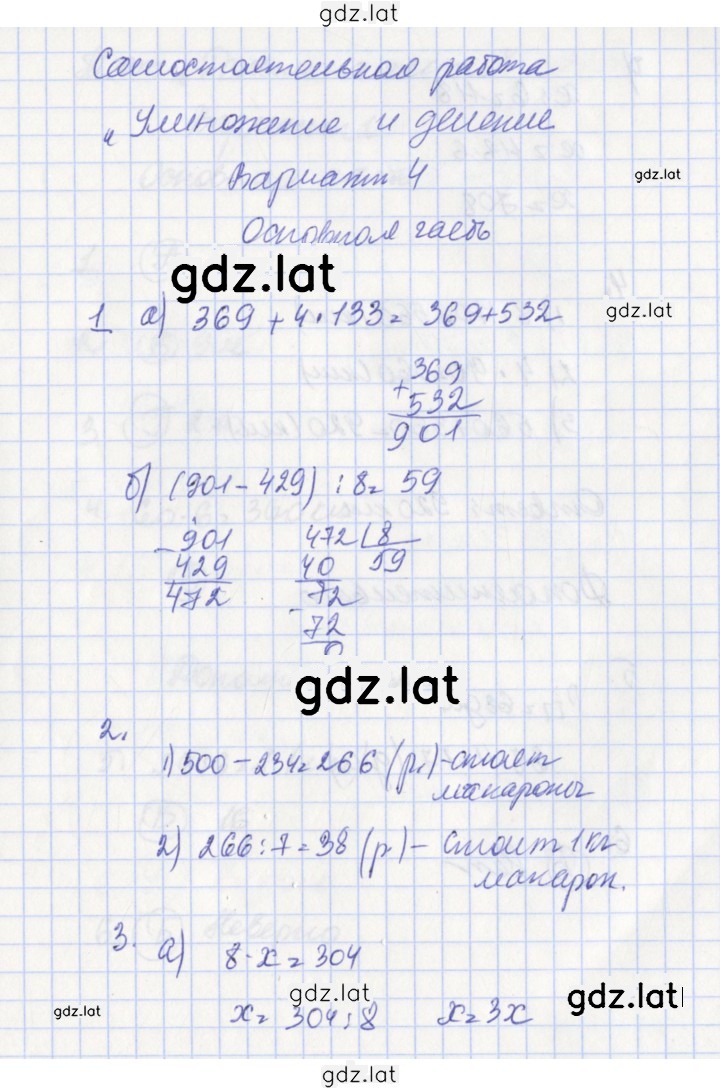 gdz.lat
Самостоятельная работа
„Умножение и деление
Вариант 4
gdz.lat
Основная часть
gdz.lat
1 а) 369 + 4 · 133 = 369 + 532
gdz.lat
369
+
532
901
б) (901 - 429) : 8 = 59
- 901
429
472
472 | 8
40 59
- 72
72
0
gdz.lat
2.
1) 500 - 234 = 266 (р.) - стоят
макароны
2) 266 : 7 = 38 (р.) - стоит 1 кг
макарон.
3. а) 8 · x = 304
gdz.lat
gdz.lat
gdz.lat
x = 304 : 8 x = 3x
gdz.lat